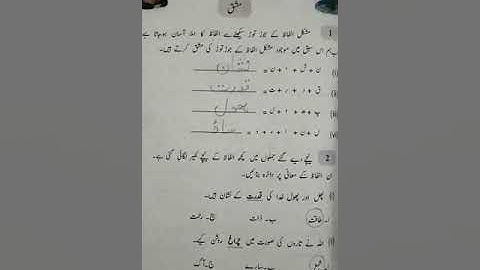 مشق
1 مشکل الفاظ کے جوڑ توڑ سیکھنے سے الفاظ کا املا آسان ہوجاتا ہے
ہم اس سبق میں موجود مشکل الفاظ کے جوڑ توڑ کی مشق کرتے ہیں۔
(i) ن + ش + ا + ن = نشان
ق + د + ر + ت = قدرت
پھ + و + ل =
2 نیچے دیے گئے جملوں میں کچھ الفاظ کے نیچے لکیر لگائی گئی ہے۔
ان الفاظ کے معانی پر دائرہ بنائیں۔
(i) پھل اور پھول خدا کی قدرت کے نشان ہیں۔
ا۔ طاقت ب۔ ذات ج۔ رحمت
اللہ نے تاروں کی صورت میں چراغ روشن کیے۔
ا۔ شمع ب۔ سارے ج۔ آگ